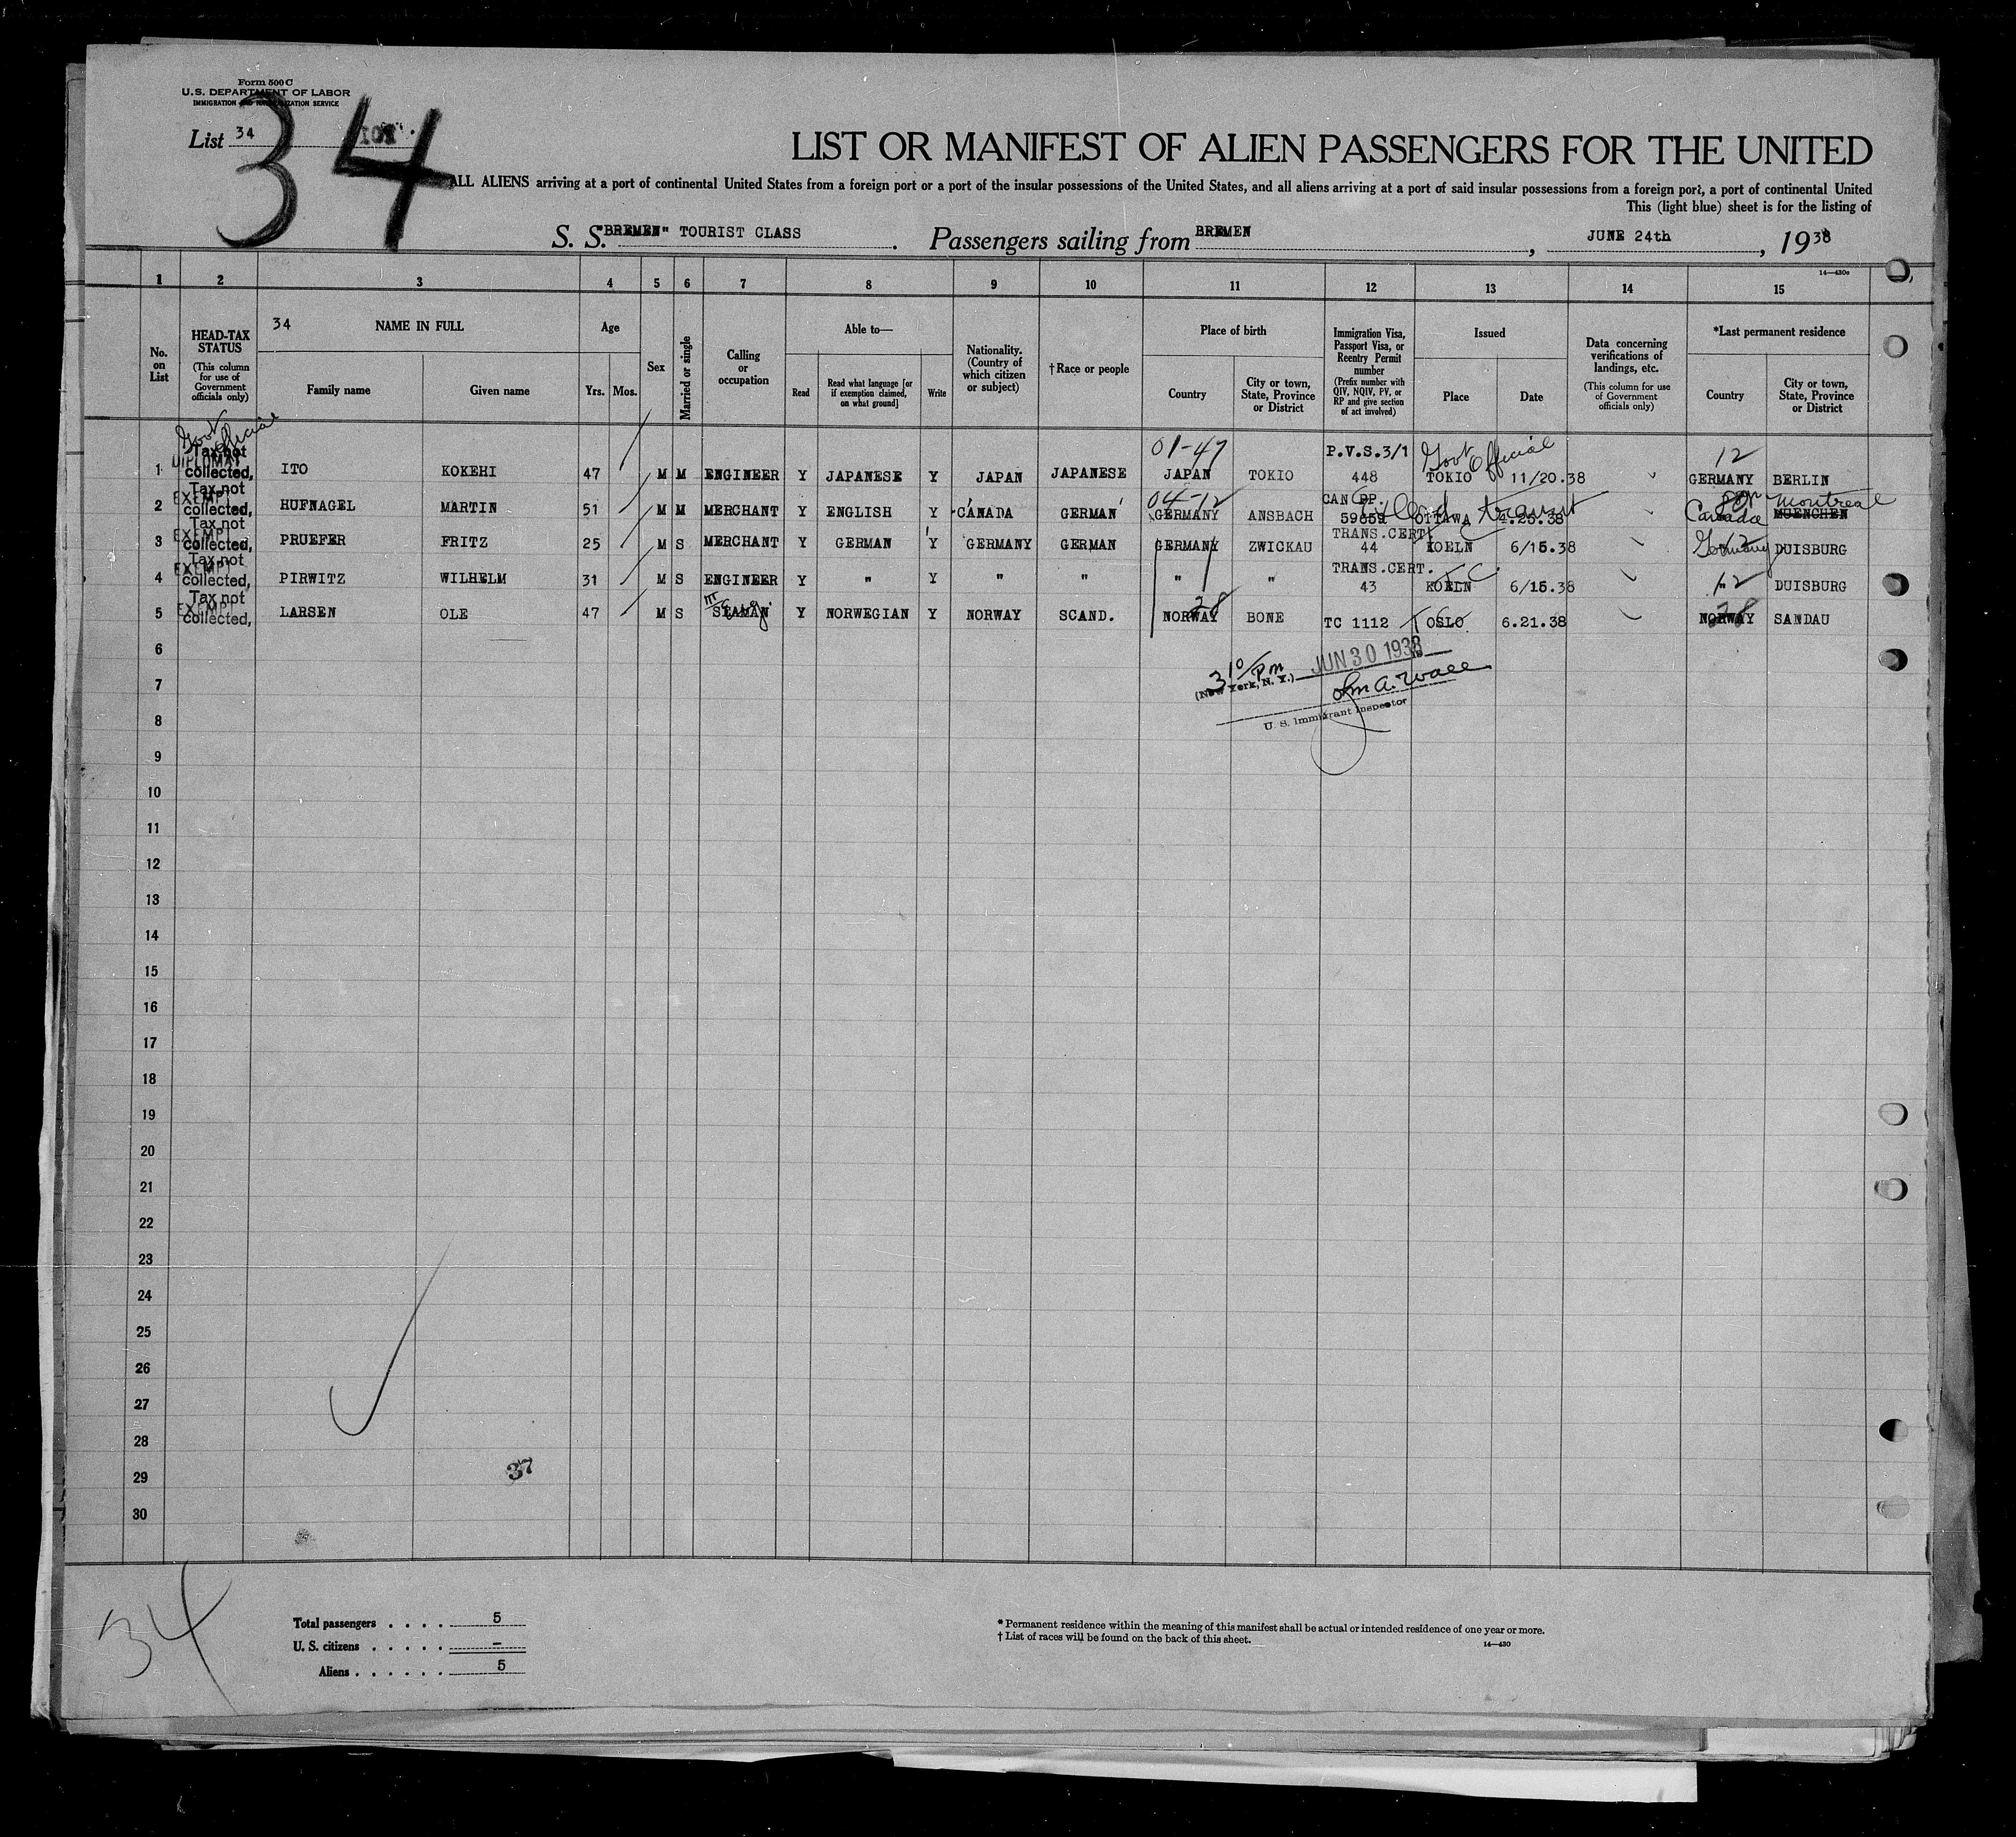 Form 500 C
U.S. DEPARTMENT OF LABOR
IMMIGRATION AND NATURALIZATION SERVICE
List 34
34
LIST OR MANIFEST OF ALIEN PASSENGERS FOR THE UNITED
ALL ALIENS arriving at a port of continental United States from a foreign port or a port of the insular possessions of the United States, and all aliens arriving at a port of said insular possessions from a foreign port, a port of continental United
This (light blue) sheet is for the listing of
S. S. "BREMEN" TOURIST CLASS . Passengers sailing from BREMEN , JUNE 24th , 1938
14—430c
1 2 3 4 5 6 7 8 9 10 11 12 13 14 15
No. on List
HEAD-TAX STATUS (This column for use of Government officials only)
34 NAME IN FULL
Family name Given name
Age
Yrs. Mos.
Sex
Married or single
Calling or occupation
Able to—
Read Read what language [or if exemption claimed, on what ground] Write
Nationality. (Country of which citizen or subject)
†Race or people
Place of birth
Country City or town, State, Province or District
Immigration Visa, Passport Visa, or Reentry Permit number (Prefix number with QIV, NQIV, PV, or RP and give section of act involved)
Issued
Place Date
Data concerning verifications of landings, etc. (This column for use of Government officials only)
*Last permanent residence
Country City or town, State, Province or District
Govt Official
01-47 P.V.S.3/1 Govt Official 12
1 DIPLOMAT Tax not collected, ITO KOKEHI 47 M M ENGINEER Y JAPANESE Y JAPAN JAPANESE JAPAN TOKIO 448 TOKIO 11/20.38 GERMANY BERLIN
04-12 CAN PP. transit Montreal
2 EXEMPT Tax not collected, HUFNAGEL MARTIN 51 M M MERCHANT Y ENGLISH Y CANADA GERMAN GERMANY ANSBACH 59659 OTTAWA 4.25.38 Canada MUENCHEN
TRANS.CERT.
3 EXEMPT Tax not collected, PRUEFER FRITZ 25 M S MERCHANT Y GERMAN Y GERMANY GERMAN GERMANY ZWICKAU 44 KOELN 6/15.38 Germany 12 DUISBURG
TRANS.CERT.
4 EXEMPT Tax not collected, PIRWITZ WILHELM 31 M S ENGINEER Y " Y " " " " 43 KOELN 6/15.38 12 DUISBURG
III Eng. 28 28
5 EXEMPT Tax not collected, LARSEN OLE 47 M S SEAMAN Y NORWEGIAN Y NORWAY SCAND. NORWAY BONE TC 1112 OSLO 6.21.38 NORWAY SANDAU
6
3 10/PM JUN 30 1938
(New York, N. Y.)
7
U. S. Immigrant Inspector
8
9
10
11
12
13
14
15
16
17
18
19
20
21
22
23
24
25
26
27
28
29
37
30
34
Total passengers . . . . 5
U. S. citizens . . . . . –
Aliens . . . . . . 5
* Permanent residence within the meaning of this manifest shall be actual or intended residence of one year or more.
† List of races will be found on the back of this sheet.
14—430